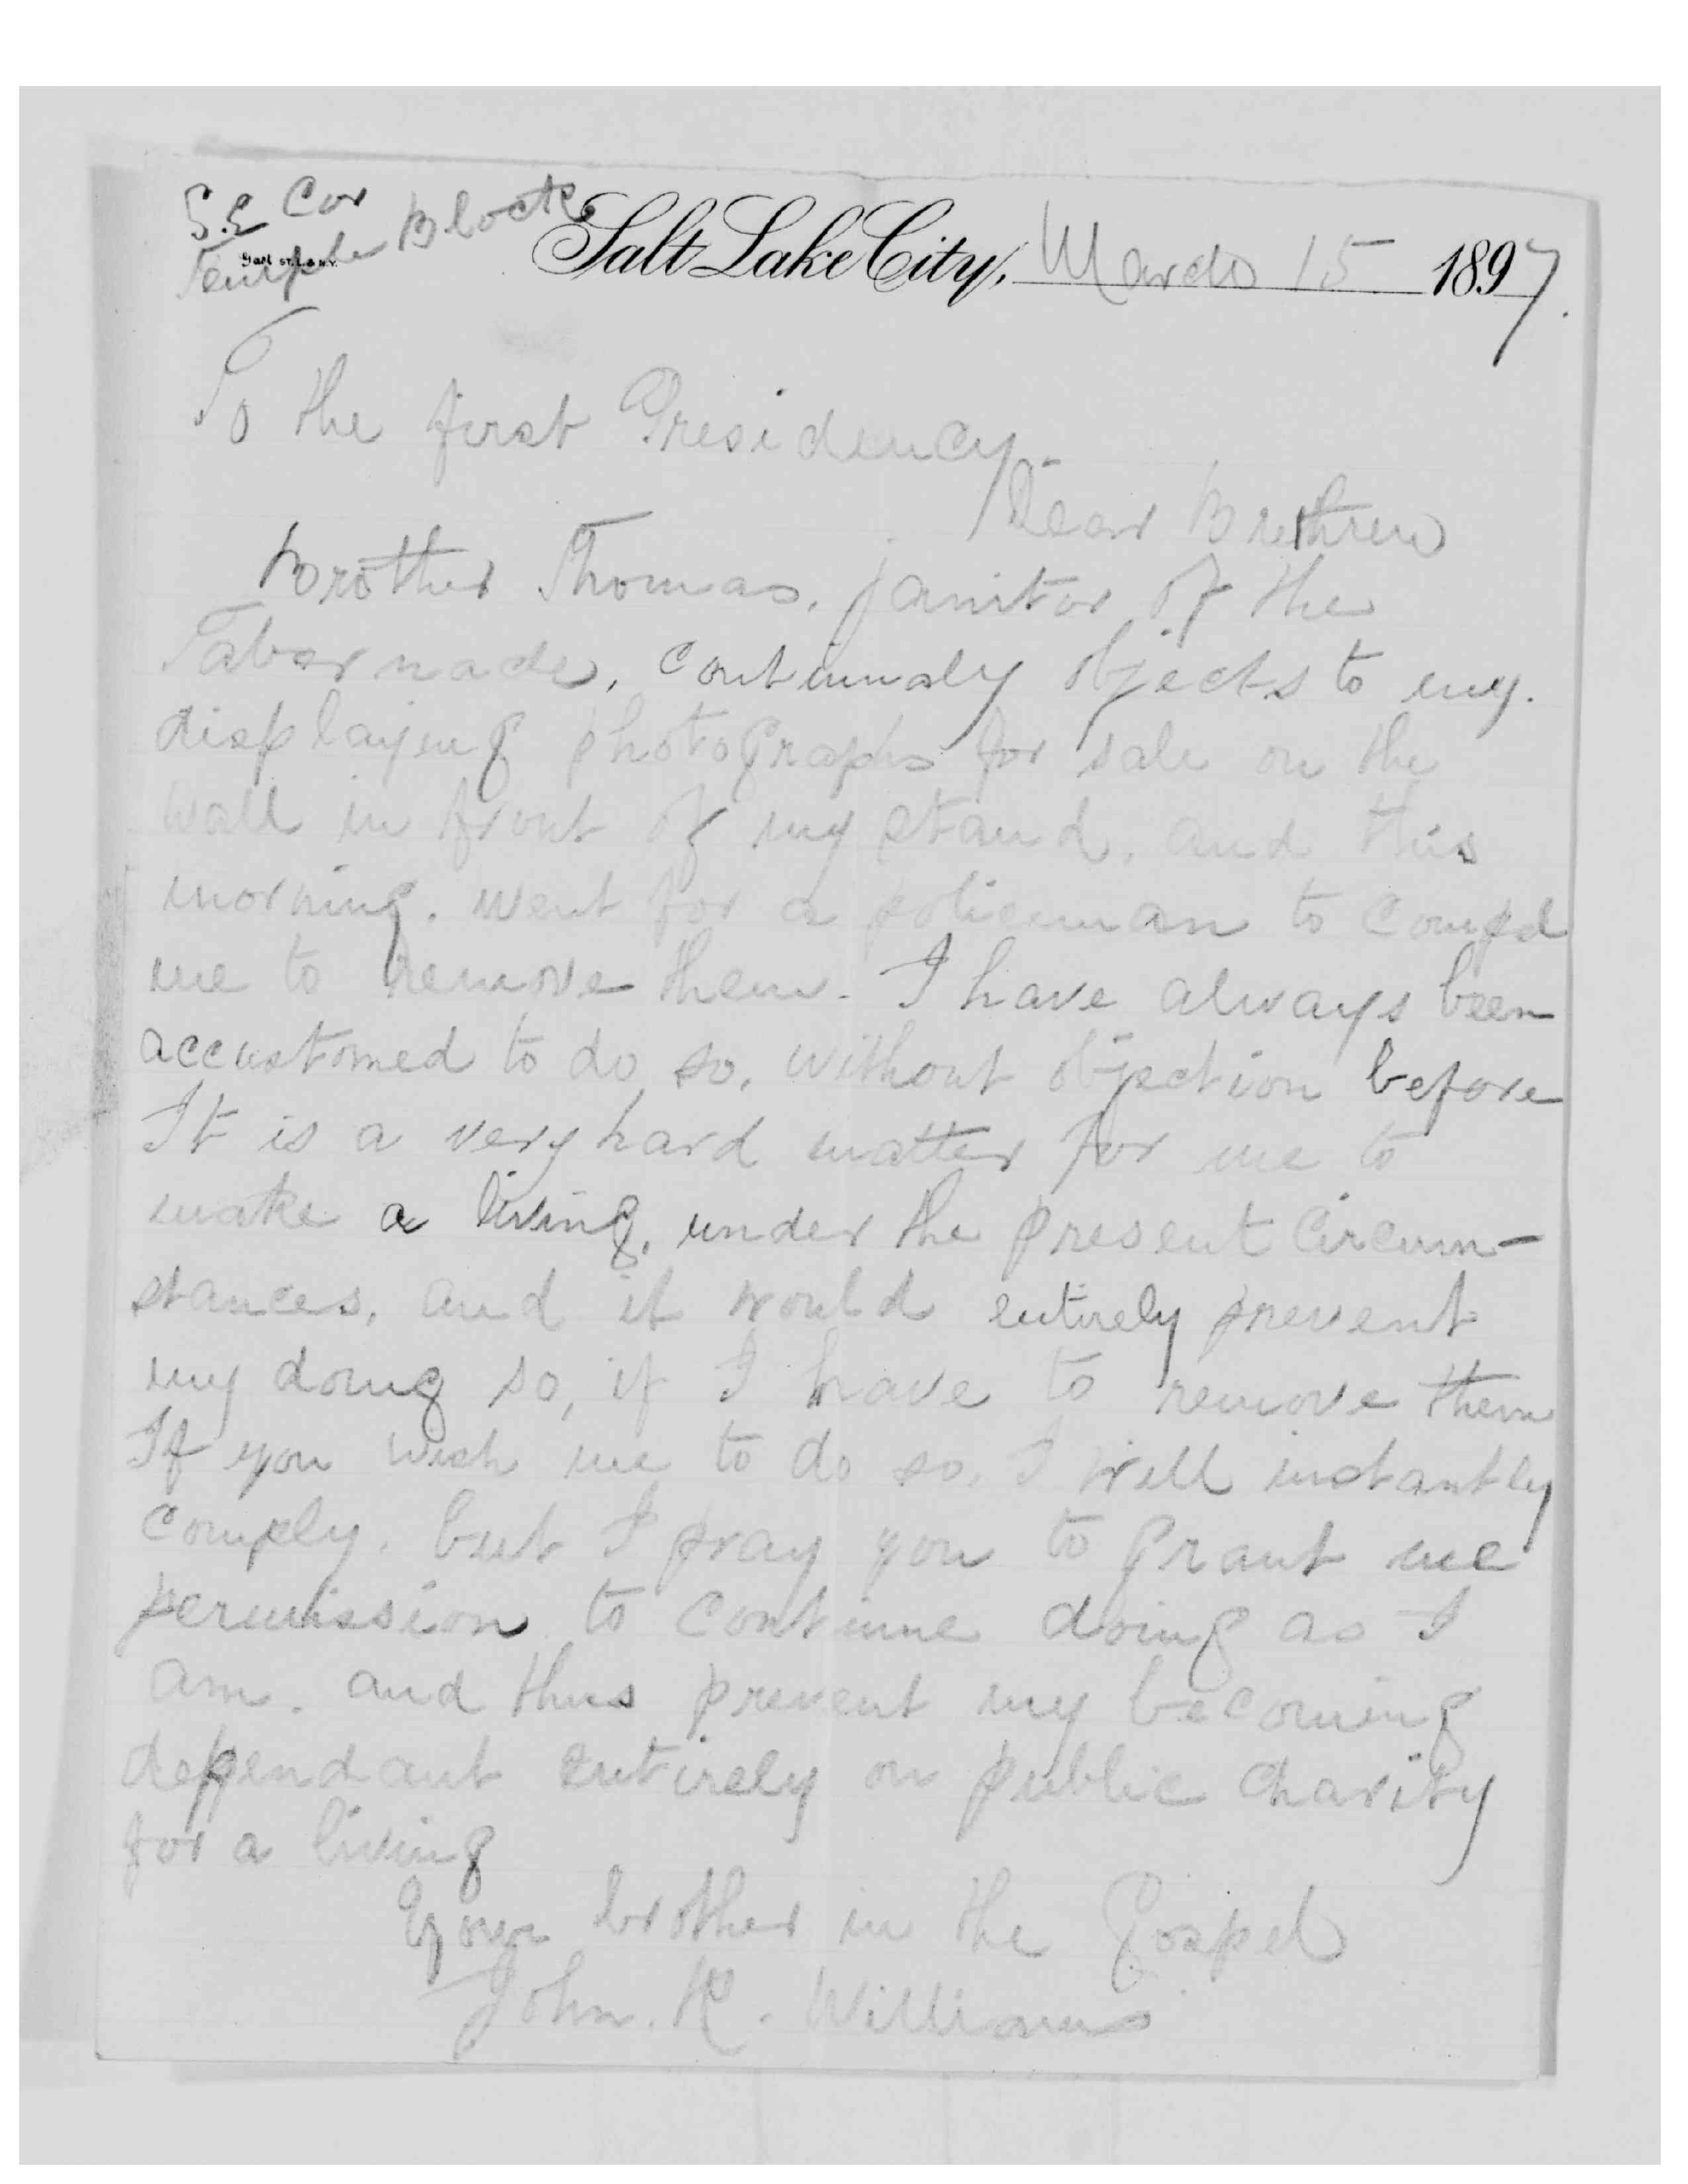 S.E Cor
Temple Block
Salt Lake City, March 15 1897.
To the first Presidency.
Dear Brethren
Brother Thomas, janitor of the
Tabernacle, continualy objects to my
displaying photographs for sale on the
wall in front of my stand, and this
morning. went for a policeman to compel
me to remove them. I have always been
accustomed to do so, without objection before
It is a very hard matter for me to
make a living, under the present circum-
stances, and it would entirely prevent
my doing so, if I have to remove them
If you wish me to do so, I will instantly
comply, but I pray you to grant me
permission to continue doing as I
am. and thus prevent my becoming
dependant entirely on public charity
for a living
Your brother in the Gospel
John. H. Williams